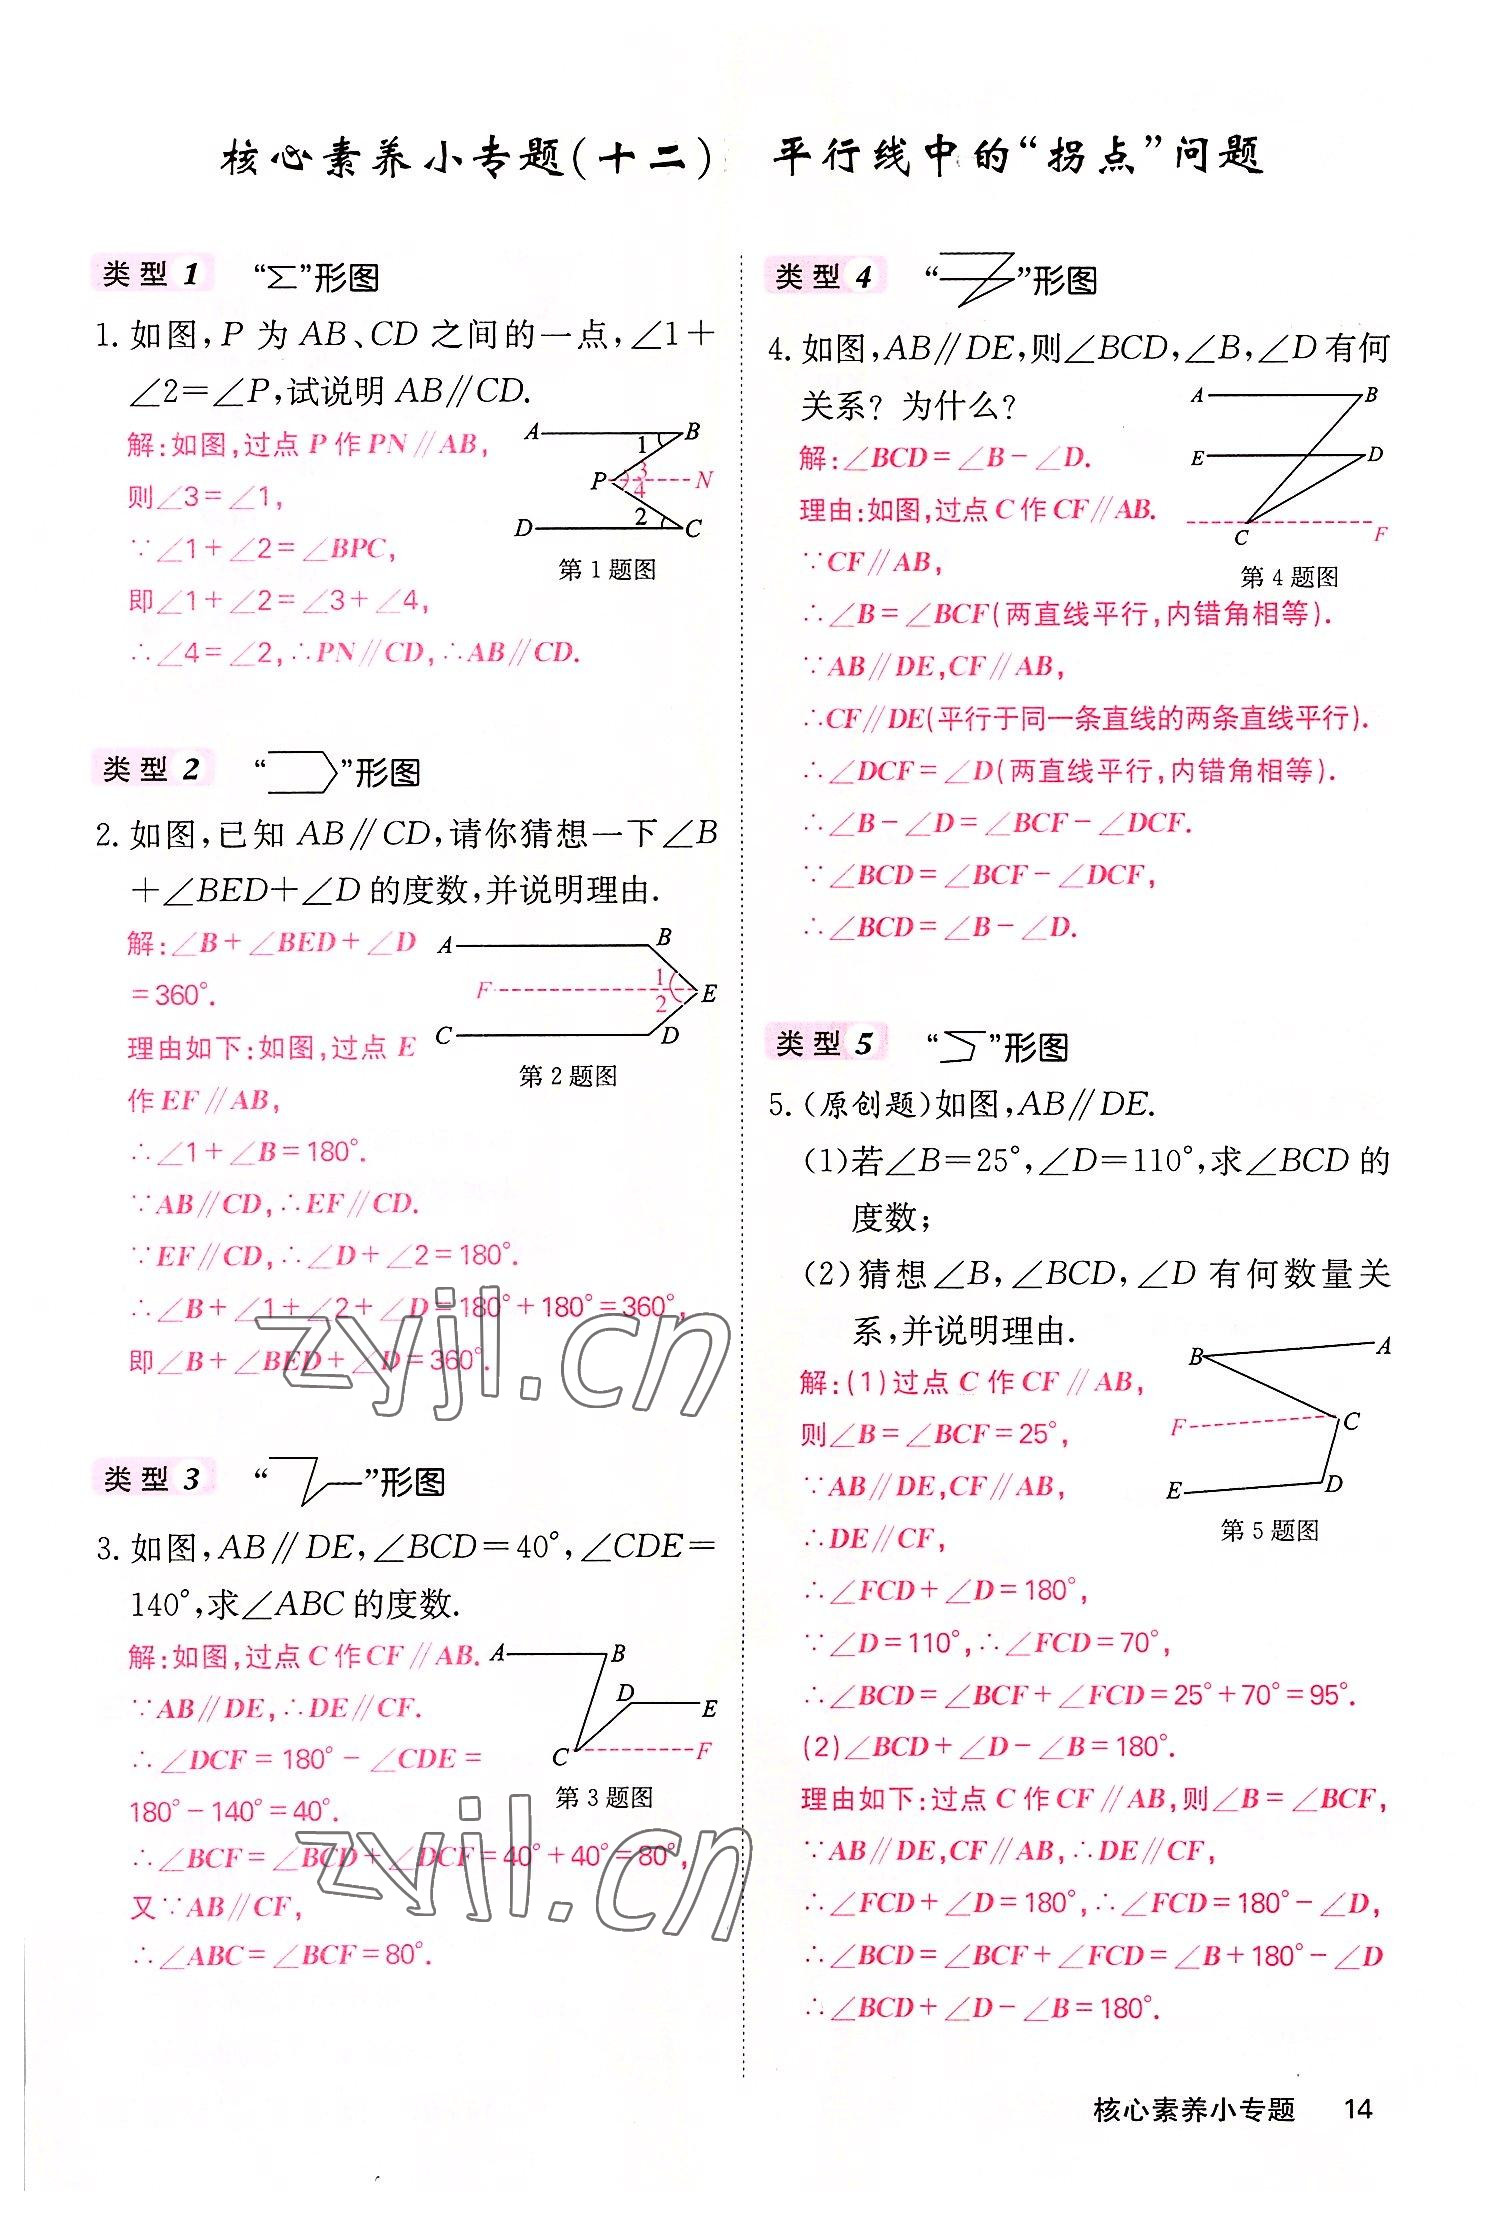 核心素养小专题(十二) 平行线中的“拐点”问题
类型 1 “”形图
1. 如图,P 为 AB、CD 之间的一点,∠1+
∠2=∠P,试说明 AB∥CD.
解:如图,过点 P 作 PN∥AB,
则∠3=∠1,
∵∠1+∠2=∠BPC,
即∠1+∠2=∠3+∠4,
∴∠4=∠2,∴PN∥CD,∴AB∥CD.
A B 1 3 P 4 N 2 D C
第 1 题图
类型 2 “”形图
2. 如图,已知 AB∥CD,请你猜想一下∠B
+∠BED+∠D 的度数,并说明理由.
解:∠B+∠BED+∠D
=360°.
理由如下:如图,过点 E
作 EF∥AB,
∴∠1+∠B=180°.
∵AB∥CD,∴EF∥CD.
∵EF∥CD,∴∠D+∠2=180°.
∴∠B+∠1+∠2+∠D=180°+180°=360°,
即∠B+∠BED+∠D=360°.
A B F 1 2 E C D
第 2 题图
类型 3 “”形图
3. 如图,AB∥DE,∠BCD=40°,∠CDE=
140°,求∠ABC 的度数.
解:如图,过点 C 作 CF∥AB.
∵AB∥DE,∴DE∥CF.
∴∠DCF=180°-∠CDE=
180°-140°=40°.
∴∠BCF=∠BCD+∠DCF=40°+40°=80°,
又∵AB∥CF,
∴∠ABC=∠BCF=80°.
A B D E C F
第 3 题图
类型 4 “”形图
4. 如图,AB∥DE,则∠BCD,∠B,∠D 有何
关系? 为什么?
解:∠BCD=∠B-∠D.
理由:如图,过点 C 作 CF∥AB.
∵CF∥AB,
∴∠B=∠BCF(两直线平行,内错角相等).
∵AB∥DE,CF∥AB,
∴CF∥DE(平行于同一条直线的两条直线平行).
∴∠DCF=∠D(两直线平行,内错角相等).
∴∠B-∠D=∠BCF-∠DCF.
∵∠BCD=∠BCF-∠DCF,
∴∠BCD=∠B-∠D.
A B E D C F
第 4 题图
类型 5 “”形图
5. (原创题)如图,AB∥DE.
(1)若∠B=25°,∠D=110°,求∠BCD 的
度数;
(2)猜想∠B,∠BCD,∠D 有何数量关
系,并说明理由.
解:(1)过点 C 作 CF∥AB,
则∠B=∠BCF=25°,
∵AB∥DE,CF∥AB,
∴DE∥CF,
∴∠FCD+∠D=180°,
∵∠D=110°,∴∠FCD=70°,
∴∠BCD=∠BCF+∠FCD=25°+70°=95°.
(2)∠BCD+∠D-∠B=180°.
理由如下:过点 C 作 CF∥AB,则∠B=∠BCF,
∵AB∥DE,CF∥AB,∴DE∥CF,
∴∠FCD+∠D=180°,∴∠FCD=180°-∠D,
∴∠BCD=∠BCF+∠FCD=∠B+180°-∠D
∴∠BCD+∠D-∠B=180°.
B A F C E D
第 5 题图
zyjl.cn
zyjl.cn
核心素养小专题 14